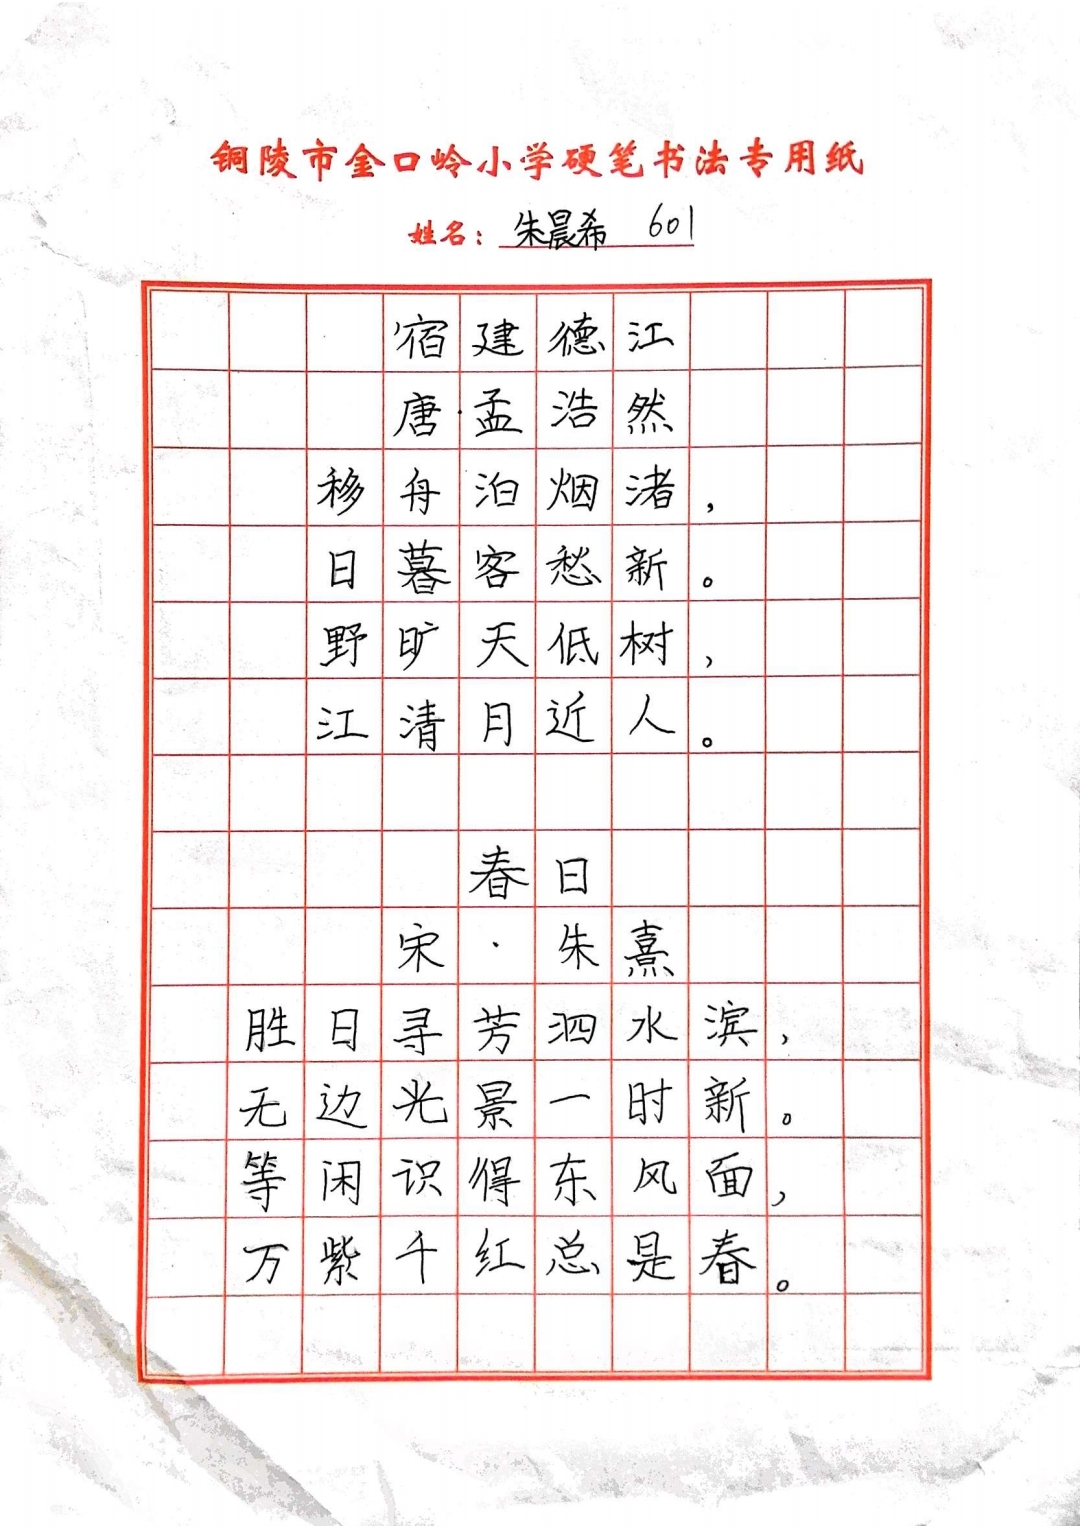 铜陵市金口岭小学硬笔书法专用纸
姓名：朱晨希 601
宿建德江
唐·孟浩然
移舟泊烟渚，
日暮客愁新。
野旷天低树，
江清月近人。
春日
宋·朱熹
胜日寻芳泗水滨，
无边光景一时新。
等闲识得东风面，
万紫千红总是春。